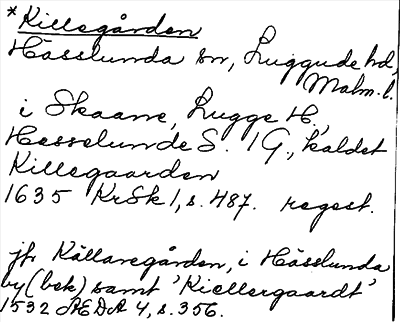 *Killegården
Hässlunda sn, Luggude hd,
Malm. l.
i Skaane, Lugge H,
Hesselunde S. 1 G., kaldet
Killegaarden
1635 KrSk 1, s. 487. regest.
jfr Källaregården, i Hässlunda
by (bek) samt 'Kiellergaardt'
1532 ÆDA 4, s. 356.